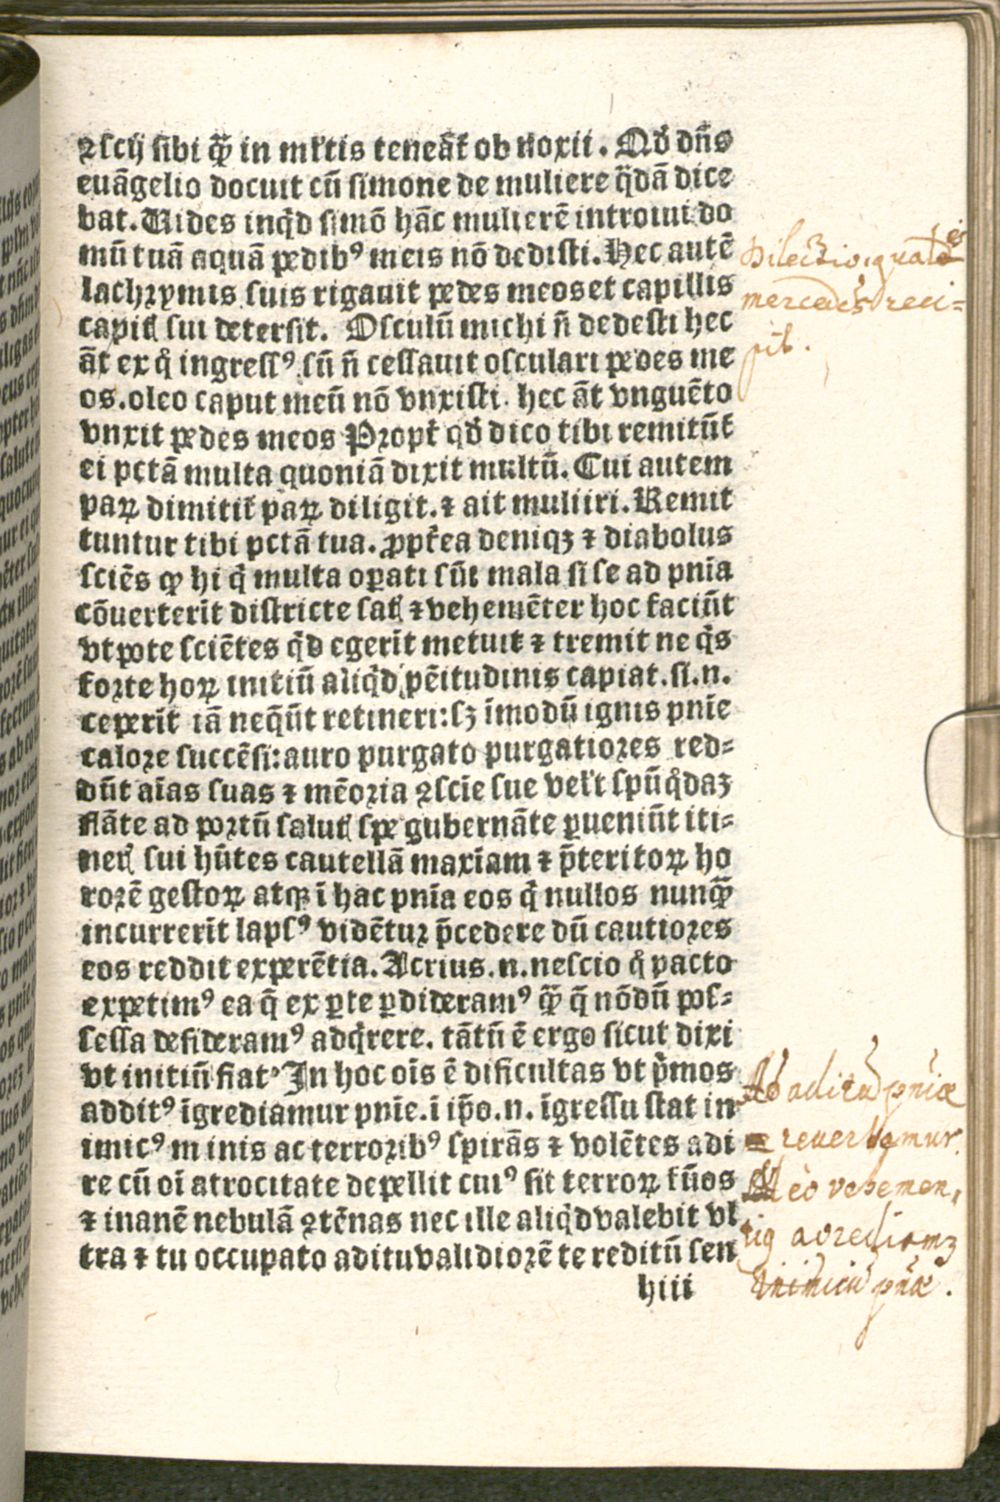 ꝯscij sibi qꝫ̃ in ml't̃is teneãt̃ ob noxii. Qd̛ dñs
euãgelio docuit cũ simone de muliere q̃dã dice
bat. Uides inq̃d simõ hãc mulierẽ introiui do
mũ tuã aquã pedibꝰ meis nõ dedisti. Hec autẽ
lachrymis suis rigauit pedes meos et capillis
capit̃ sui detersit. Osculũ michi ñ dedesti hec
ãt ex q̊ ingressꝰ sũ ñ cessauit osculari pedes me
os. oleo caput meũ nõ vnxisti. hec ãt vnguẽto
vnxit pedes meos Propt̃ qd̛ dico tibi remitũt̃
ei pctã multa quoniã dixit multũ. Cui autem
paꝝ dimitit̃ paꝝ diligit. ⁊ ait muliiri. Remit
tuntur tibi pctã tua. ꝓpt̃ea deniqꝫ ⁊ diabolus
sciẽs ꝙ hi q̃ multa oꝑati sũt mala si se ad pnĩa
cõuerterĩt districte sat̃ ⁊ vehemẽter hoc faciũt
vtpote sciẽtes q̃d egerĩt metuit ⁊ tremit ne q̃s
forte hoꝝ initiũ aliq̃d pẽitudinis capiat. si. n.
ceperit iã neq̃ũt retineri: sꝫ ĩmodũ ignis pnĩe
calore succẽsi: auro purgato purgatiores red⸗
dũt aĩas suas ⁊ mẽoria ꝯscĩe sue vel't spũ q̊daꝫ
flãte ad portũ salut̃ spe gubernãte ꝑueniũt iti⸗
ner̃ sui hñtes cautellã maxĩam ⁊ p̃teritoꝝ ho
rorẽ gestoꝝ atqꝫ ĩ hac pnĩa eos q̃ nullos nunqꝫ̃
incurrerĩt lapsꝰ vidẽtur p̃cedere dũ cautiores
eos reddit experẽtia. Acrius. n. nescio q̊ pacto
expetimꝰ ea q̃ ex ꝑte ꝑdideramꝰ qꝫ̃ q̃ nõdũ pos⸗
sessa desideramꝰ adq̃rere. tãtũ ẽ ergo sicut dixi
vt initiũ fiat. In hoc oĩs ẽ dificultas vt p̃mos
additꝰ ĩgrediamur pnĩe. ĩ ip̃o. n. ĩgressu stat in
imicꝰ m inis ac terroribꝰ spirãs ⁊ volẽtes adi
re cũ oĩ atrocitate depellit cuiꝰ sit terroꝝ f̃uẽos
⁊ inanẽ nebulã ꝯtẽnas nec ille aliq̃d valebit vl
tra ⁊ tu occupato aditu validiorẽ te reditũ sen
hiii
Dilectio, quatẽ
mercedẽs reci⸗
pit.
Ab aditu pnĩæ
reuertemur.
eò vehemen⸗
tiꝰ adredi
inimicũ pnæ.